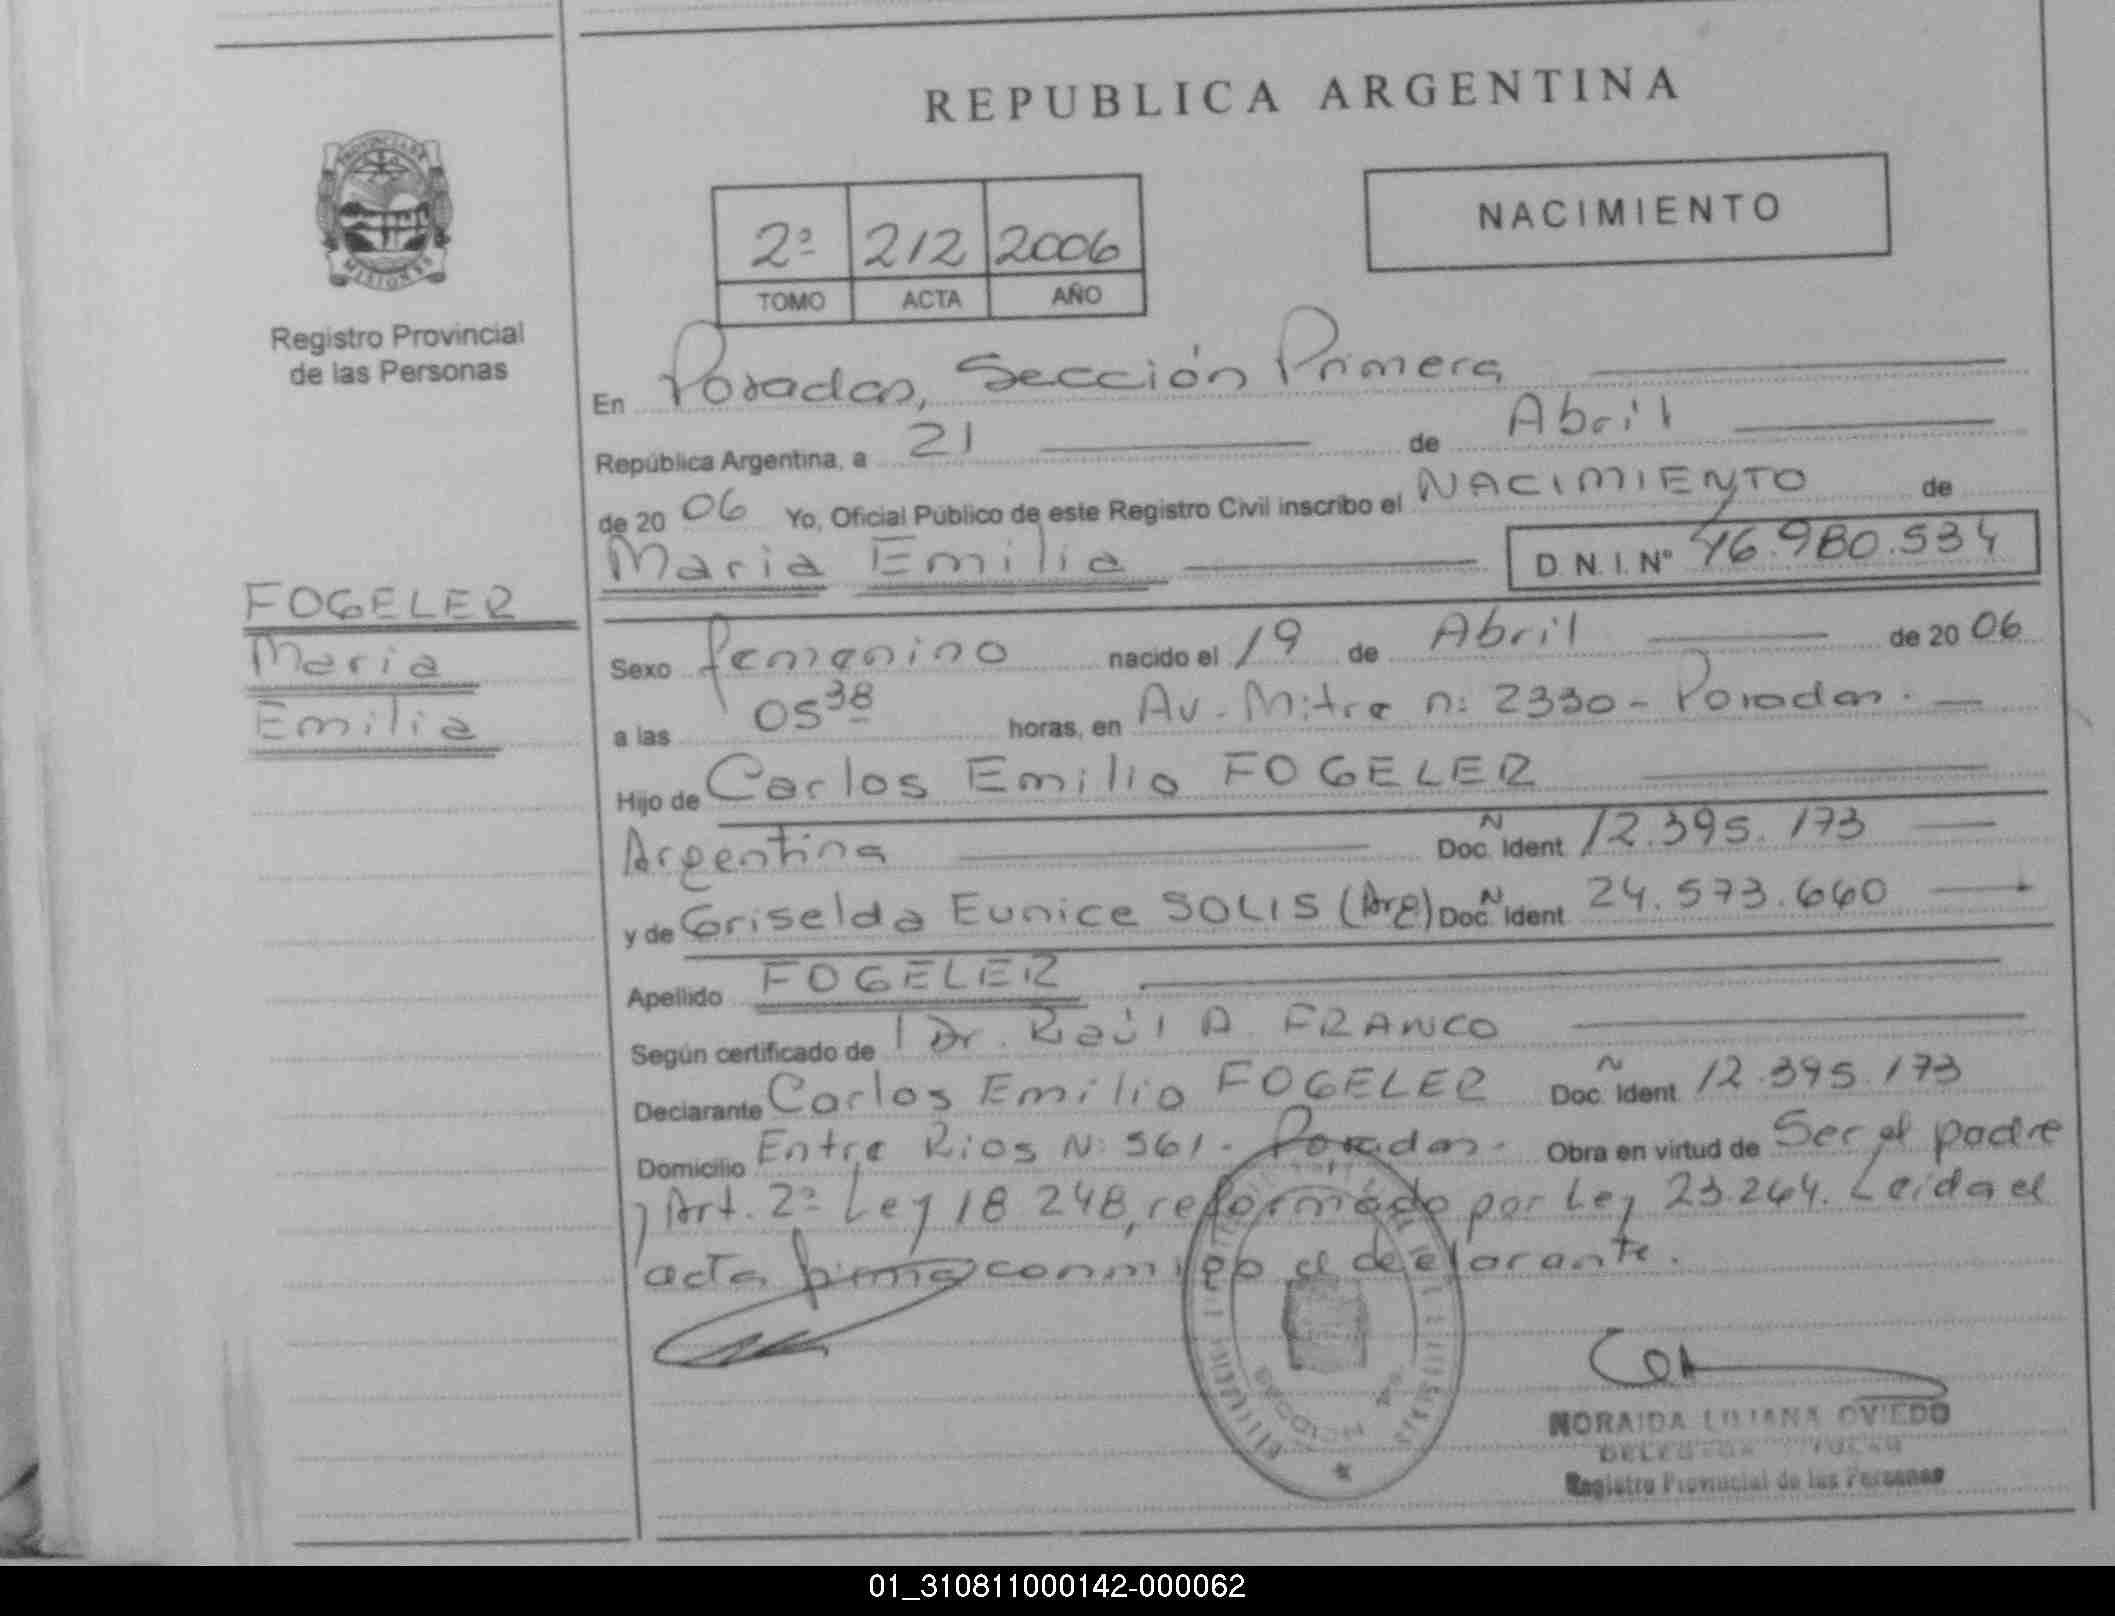 REPUBLICA ARGENTINA
PROVINCIA DE
MISIONES
Registro Provincial
de las Personas
2ª 212 2006
TOMO ACTA AÑO
NACIMIENTO
En Posadas, Sección Primera
República Argentina, a 21 de Abril
de 20 06 Yo, Oficial Público de este Registro Civil inscribo el NACIMIENTO de
Maria Emilia D.N.I. Nº 46.980.534
FOGELER
Maria
Emilia
Sexo femenino nacido el 19 de Abril de 20 06
a las 05 38 horas, en Av. Mitre n: 2330 - Posadas. -
Hijo de Carlos Emilio FOGELER
Argentina Doc. Ñ Ident 12.395.173
y de Griselda Eunice SOLIS (Arg) Doc. Ñ Ident 24.573.660
Apellido FOGELER
Según certificado de l Dr. Raúl A. FRANCO
Declarante Carlos Emilio FOGELER Doc. Ñ Ident 12.395.173
Domicilio Entre Rios N: 561 - Posadas - Obra en virtud de Ser el padre
y Art. 2º Ley 18 248, reformado por Ley 23.264. Leida el
acta firma conmigo el declarante.
NORAIDA LILIANA OVIEDO
DELEGADA TITULAR
Registro Provincial de las Personas
01_310811000142-000062